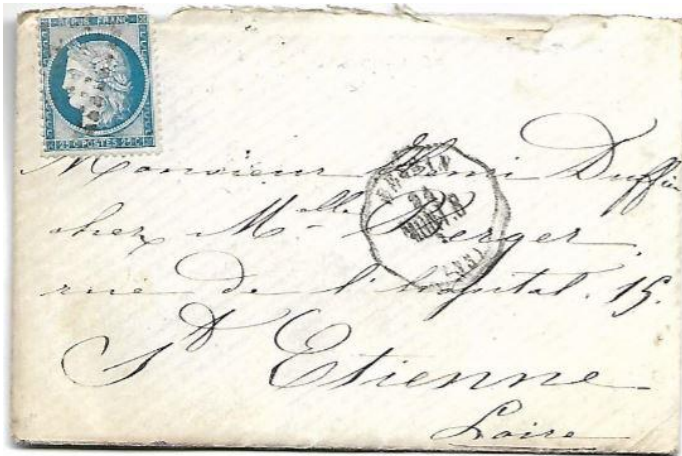 REPUB. FRANC.
25 C POSTES 25 C
Monsieur
chez M.elle Berger
rue de l'hopital. 15.
St Etienne
Loire